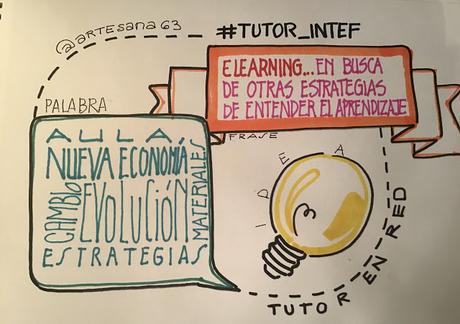 @artesana63
#TUTOR_INTEF
E LEARNING... EN BUSCA
DE OTRAS ESTRATEGIAS
DE ENTENDER EL APRENDIZAJE
FRASE
PALABRA
AULA
NUEVA ECONOMÍA
CAMBIO
EVOLUCIÓN
MATERIALES
ESTRATEGIAS
IDEA
TUTOR EN RED